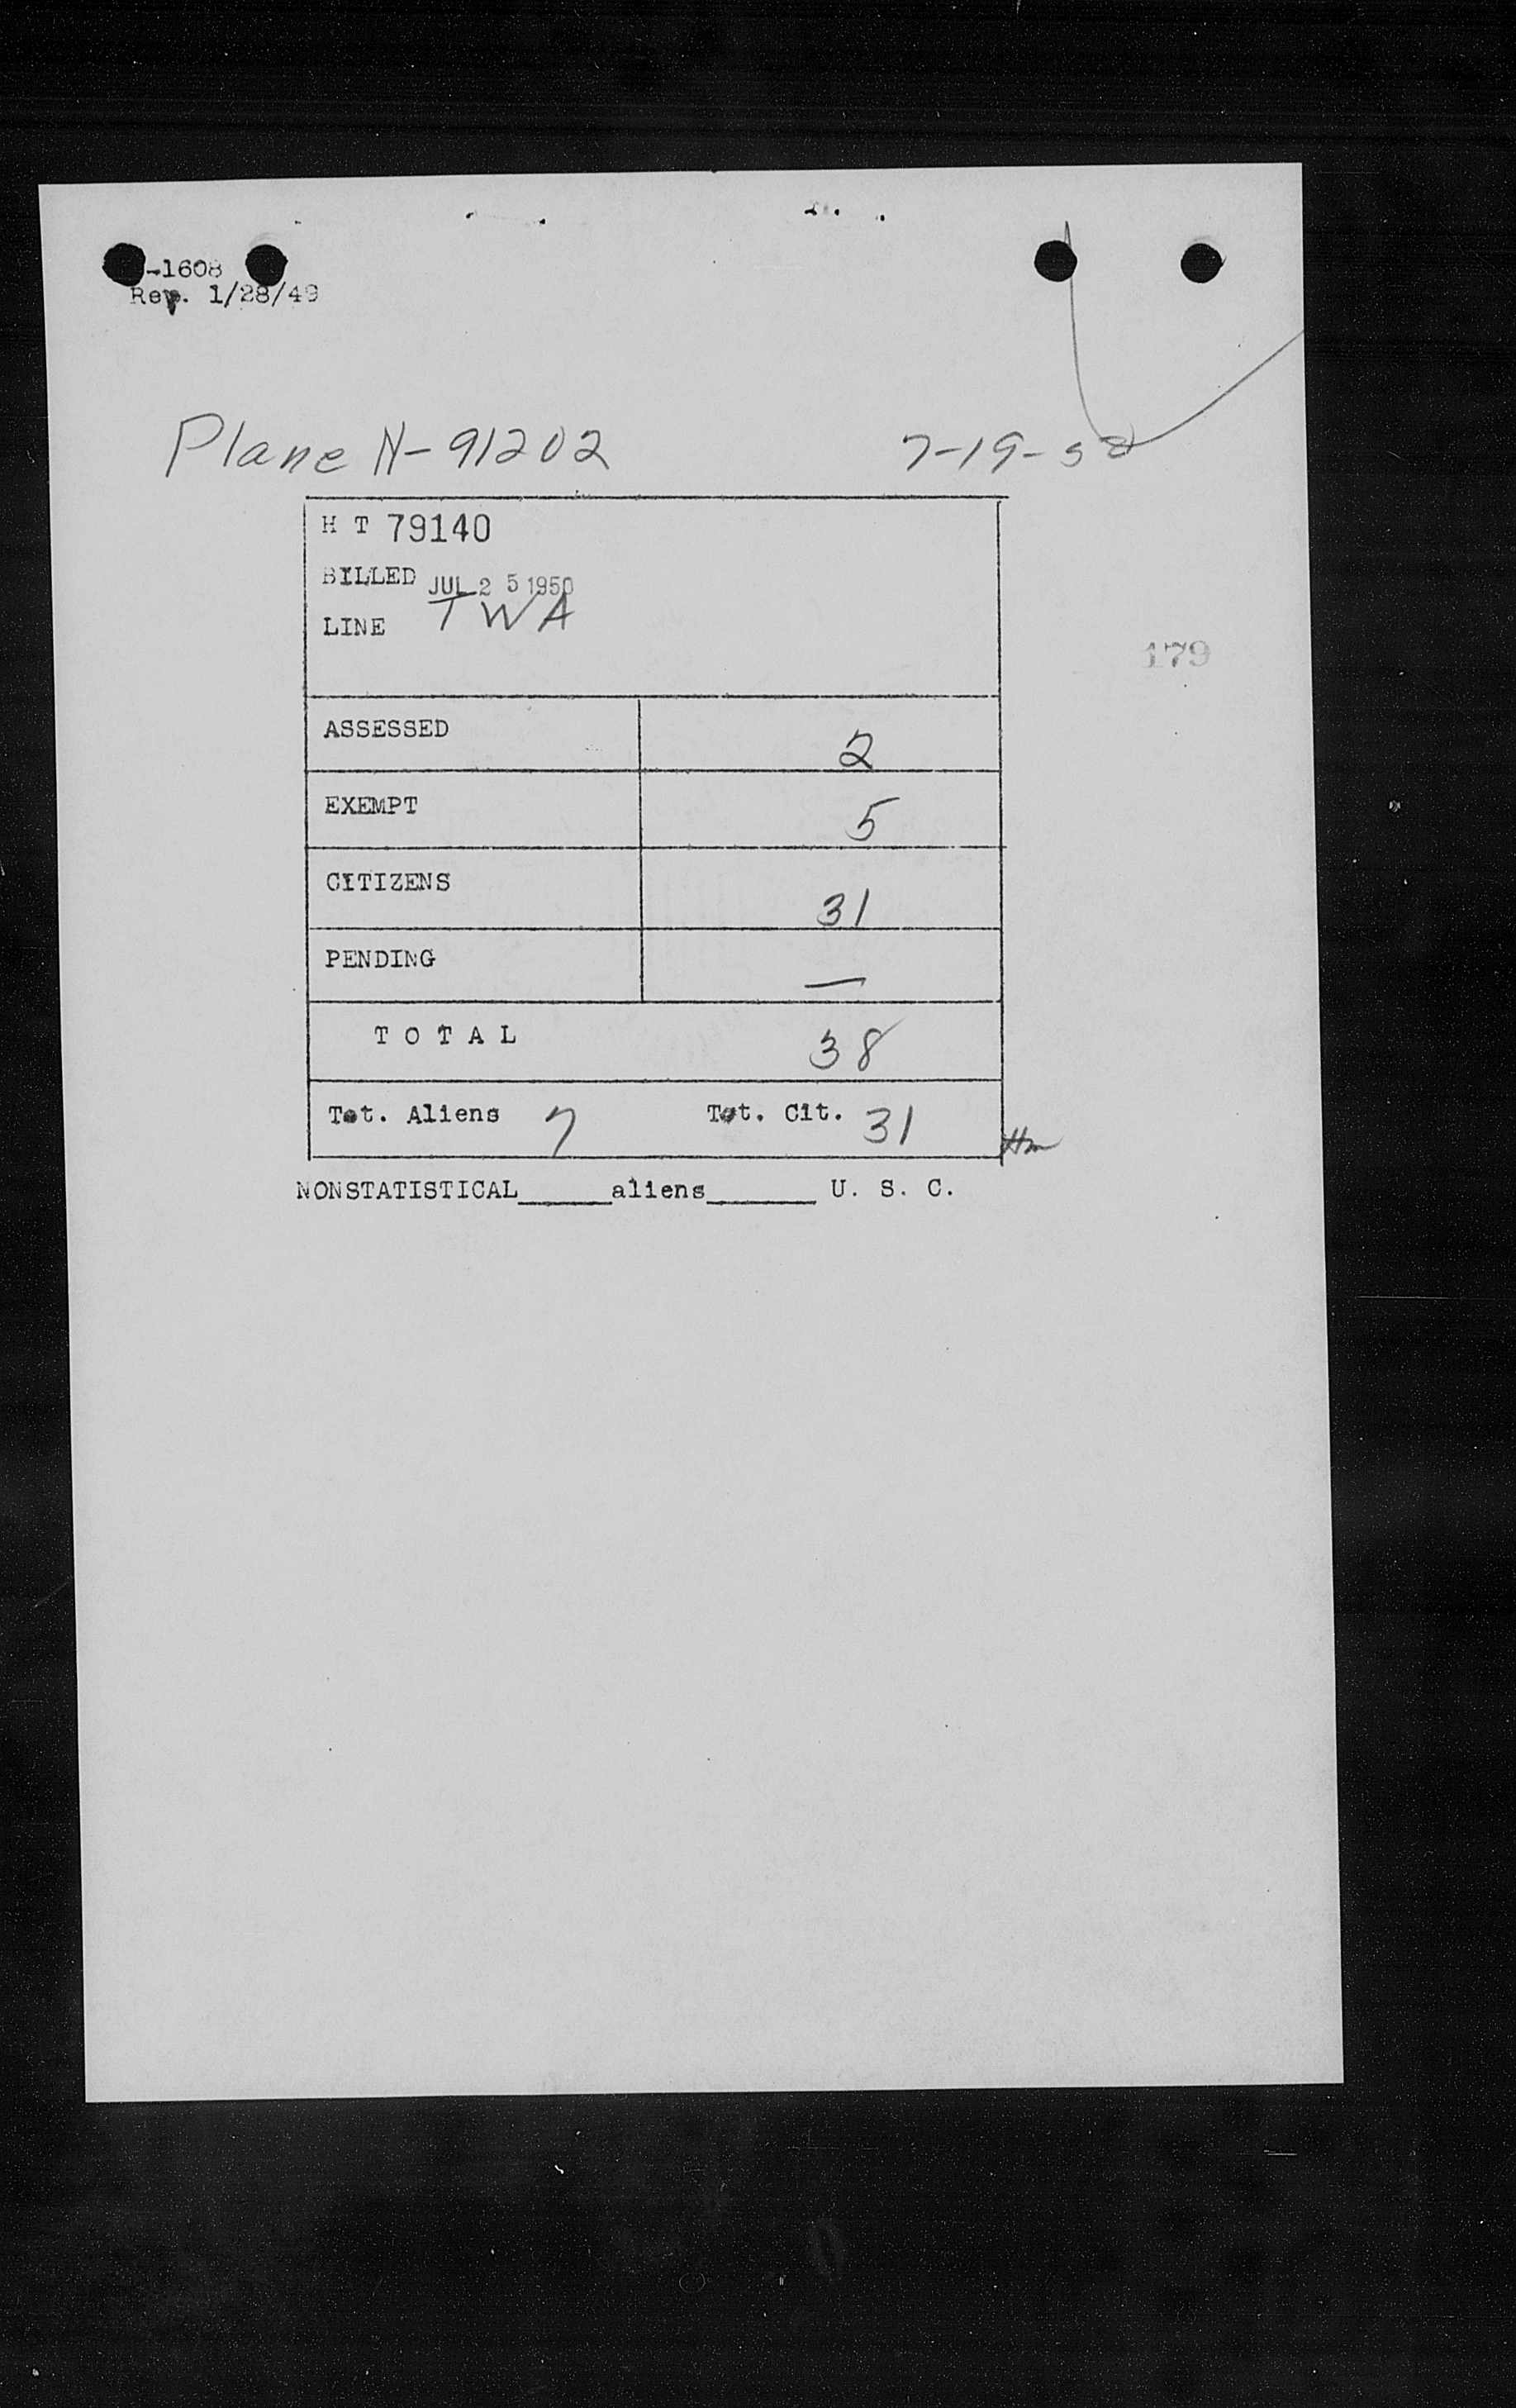 -1608
Rev. 1/28/49
Plane N-91202 7-19-50
H T 79140
BILLED JUL 25 1950
LINE TWA
179
ASSESSED 2
EXEMPT 5
CITIZENS 31
PENDING —
TOTAL 38
Tot. Aliens 7 Tot. Cit. 31
NONSTATISTICAL______aliens_______ U. S. C.